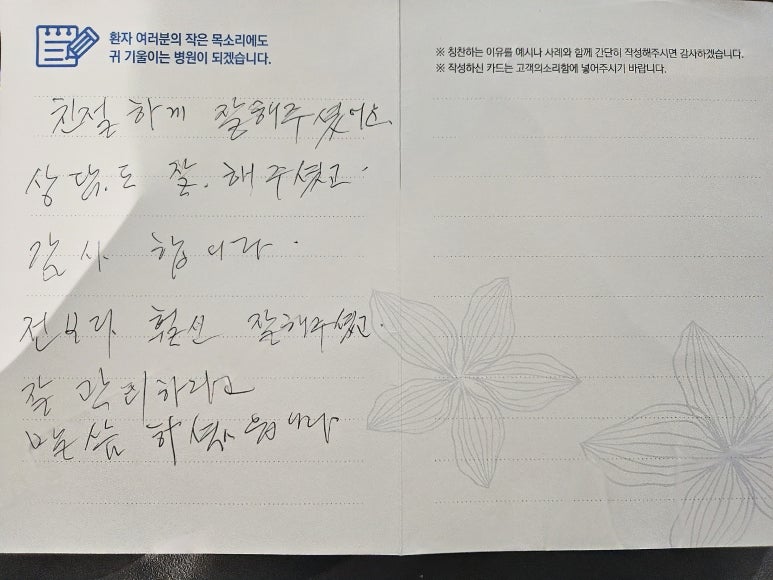 환자 여러분의 작은 목소리에도
귀 기울이는 병원이 되겠습니다.
※ 칭찬하는 이유를 예시나 사례와 함께 간단히 작성해주시면 감사하겠습니다.
※ 작성하신 카드는 고객의소리함에 넣어주시기 바랍니다.
친절하게 잘해주셨어요.
상담도 잘 해주셨고
감사 합니다.
전보다 훨신 잘해주셨고.
잘 관리하라고
말씀 하셨습니다